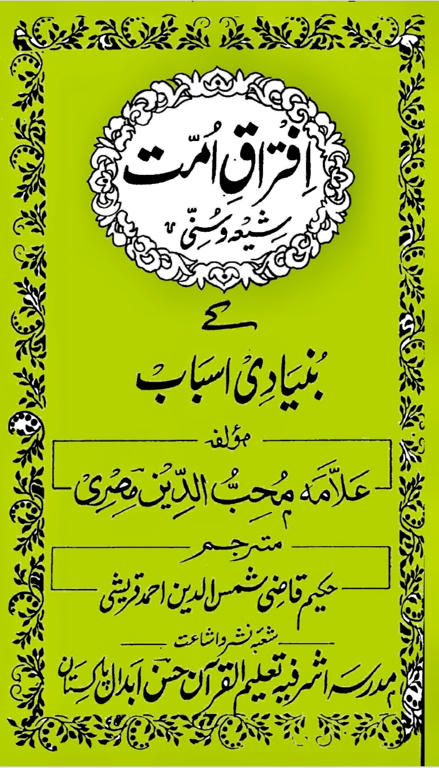 اِفتراقِ اُمّت
شیعہ و سُنّی
کے
بُنیادِی اسبَاب
مؤلفہ
عَلاَّمَہ مُحِبُّ الدِّین مِصرِی
مترجم
حکیم قاضِی شمس الدین احمد قریشی
شعبۂ نشر و اشاعت
مدرسہ اشرفیہ تعلیم القرآن حسن ابدال پاکستان